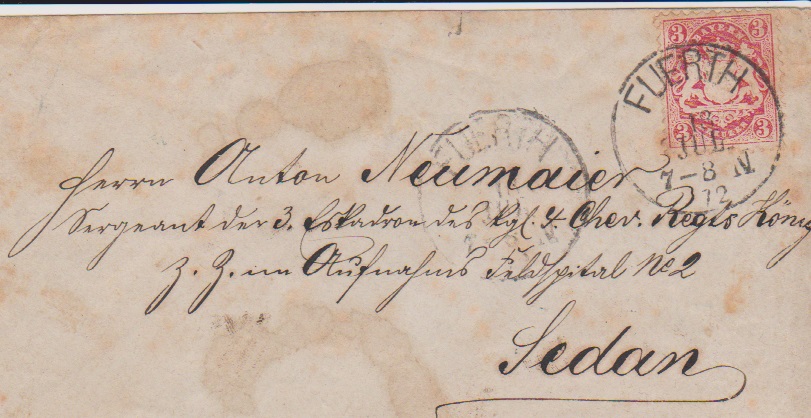 3 BAYERN 3
3 3
FUERTH
JUL.
7-8 N.
72
FUERTH
Herrn Anton Neumaier
Sergeant der 3. Eskadron des Kgl. 4 Chev. Regts König
z. Z. im Aufnahms Feldspital No 2
Sedan